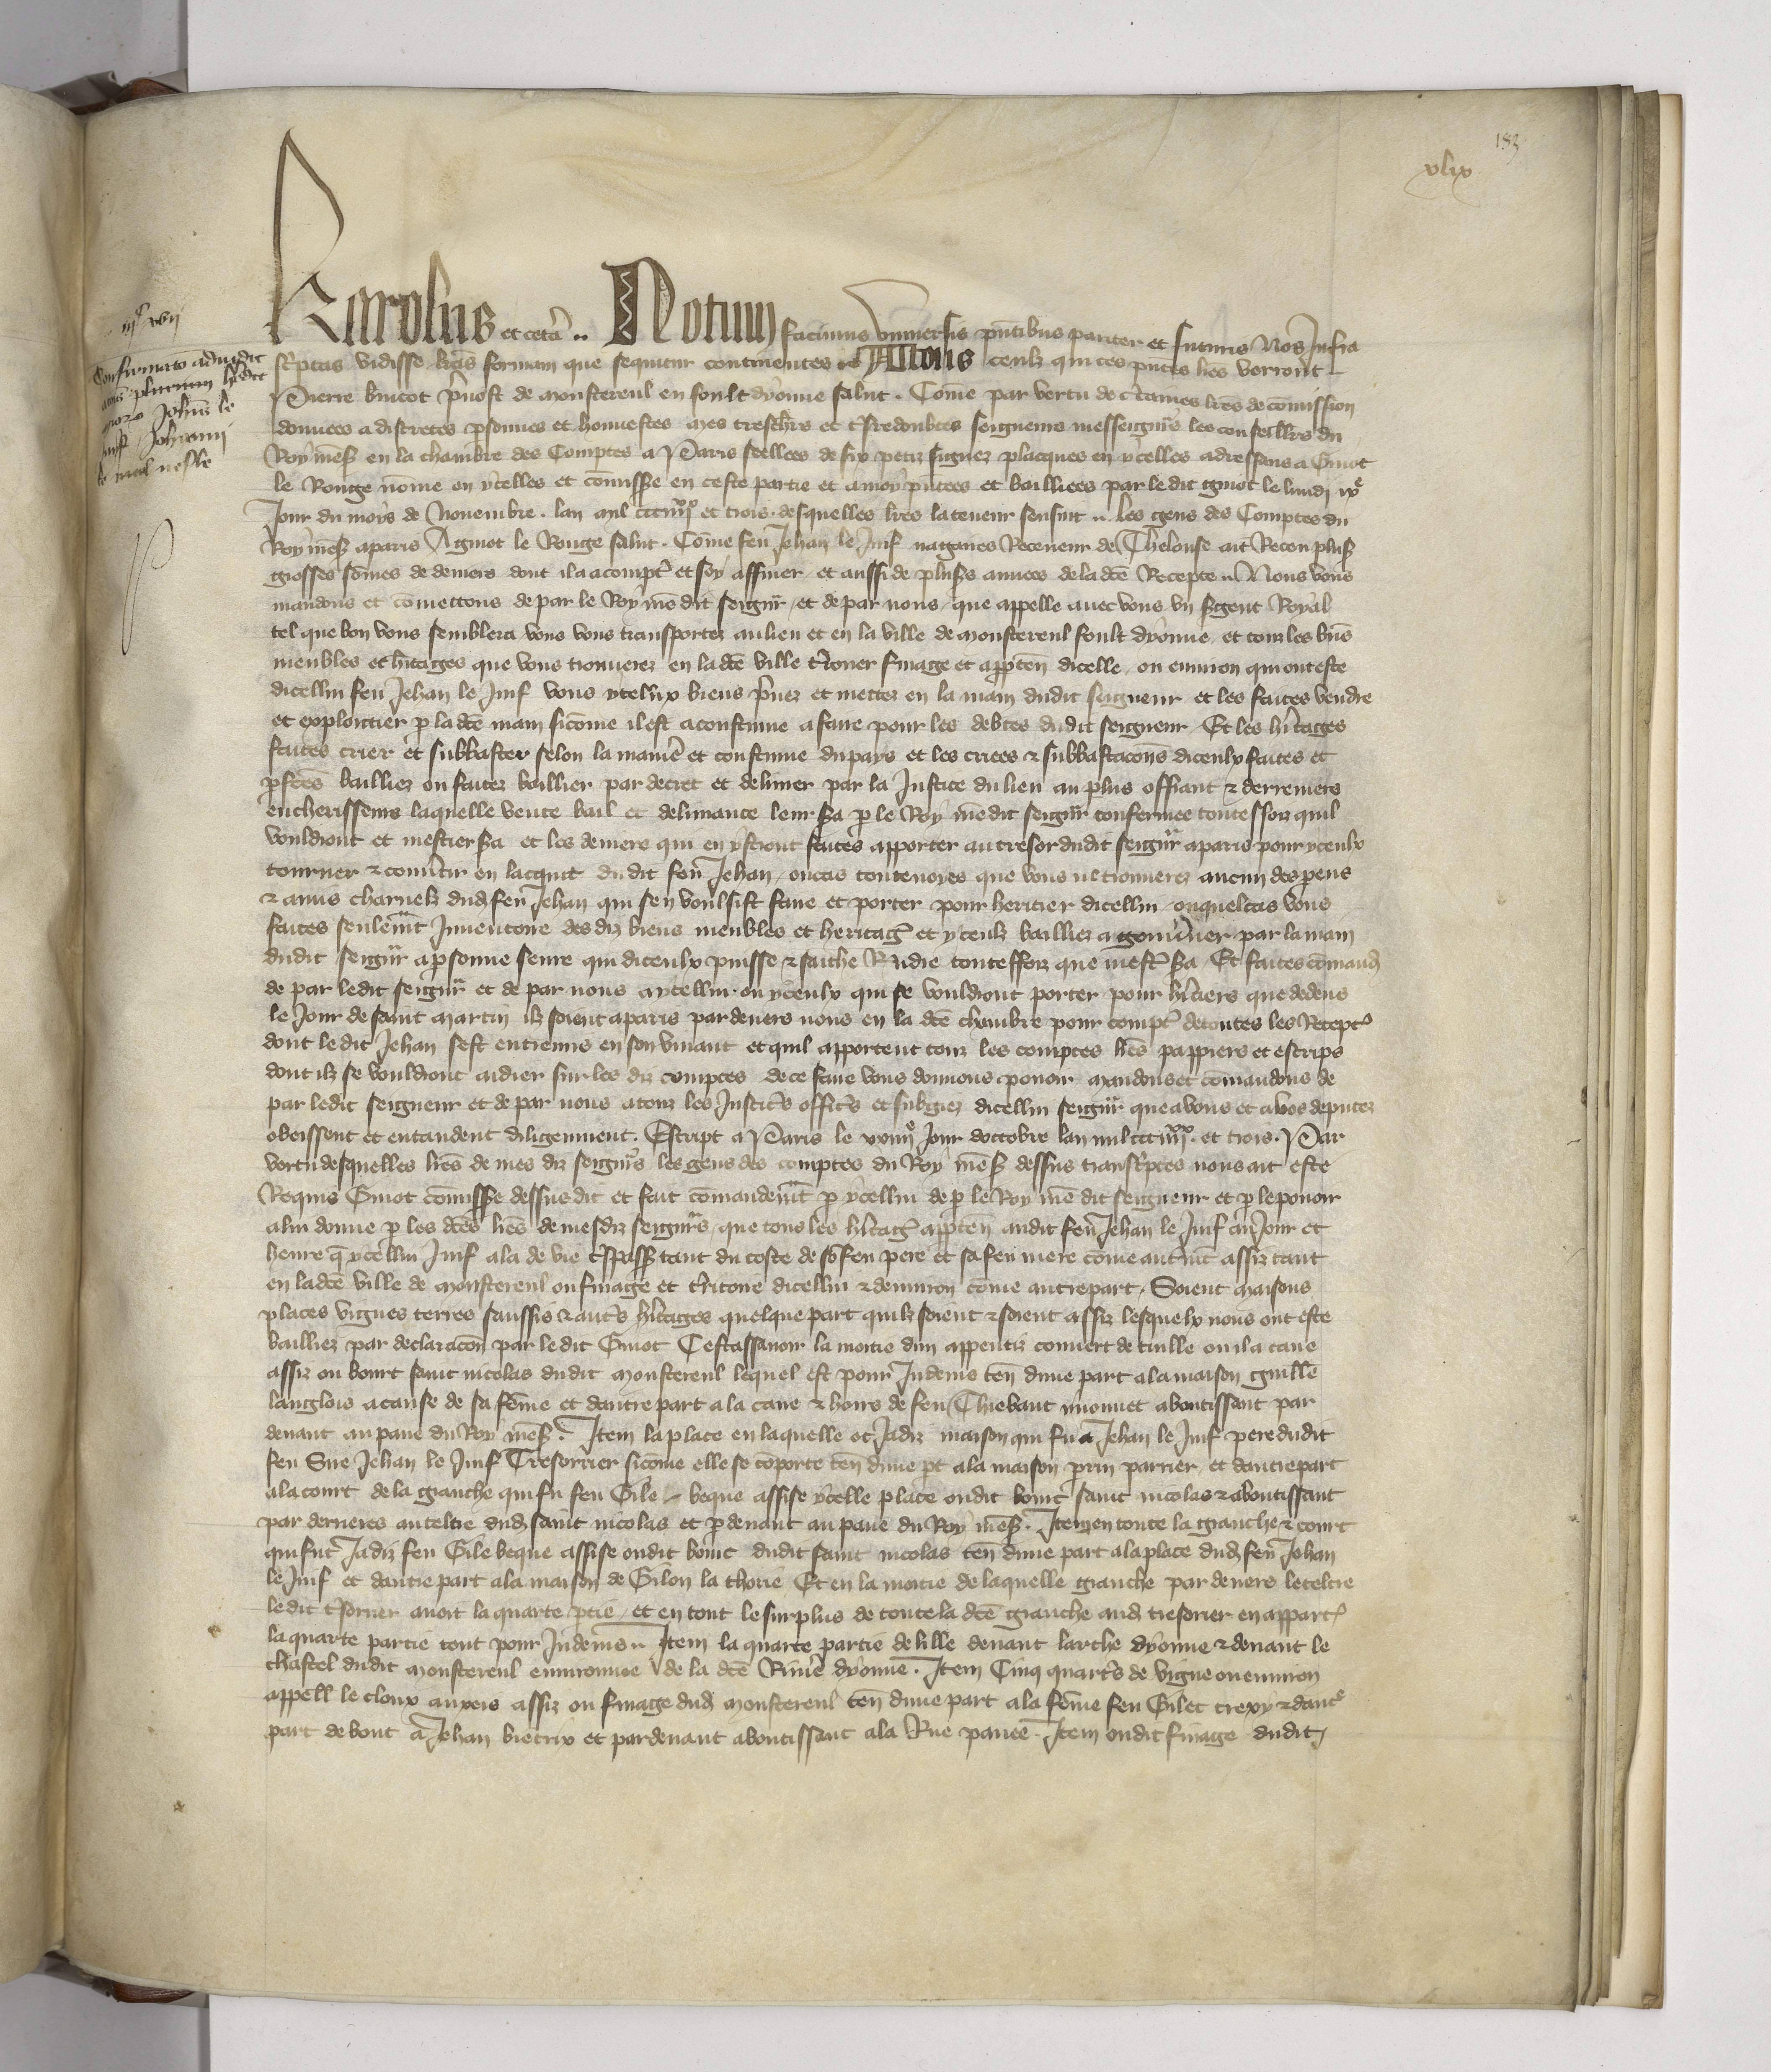 183
xlix
iijc xvij
Confirmatio adiudic
acionis plurium heredit
Johannis le
Juif Johanni
le
Karolus et cetera .. Notum facimus vniuersis pñtibus pariter et futuris Nos Infra
scriptas vidisse lrãs formam que sequitur continentes A Tous ceulx qui ces pñtes lrẽs verront
Pierre preuost de Monstereul en foult dyonne salut . Cõme par vertu de certaines lrẽs de cõmission
donnees a discretes psonnes et honnestes Mes treschrs et tsredoubtes seigneurs messeigñrs les conseillrs du
Roy ñrẽ sr en la chambre des Comptes a Paris seellees de six petiz signez placques en ycelles adressans a Guiot
le Rouge nõme en ycelles et cõmissre en ceste partie et a moy pñtees et baillees par le dit guiot le lundj ixe
Jour du moys de Nouembre . lan mil ccc iiijxx et trois . desquelles lrẽs la teneur sensuit .. les gens des Comptes du
Roy ñrẽ sr a paris A guiot le Rouge salut . Cõme feu Jehan le Juif nagaires Receueur de Tholouse ait Receu pluss
grosses sõmes de deniers dont il a a compter et soy affiner et aussi de pluss annees de la dcẽ Recepte .. Nous vous
mandons et cõmettons de par le Roy ñrẽ dit seigñr et de par nous que appelle auec vous vn sgent Royal
tel que bon vous semblera vous vous transportez au lieu et en la ville de Monstereul foult dyonne et touz les biẽs
meubles et hritages que vous trouuerez en la dcẽ ville terrouer finage et apptẽn dicelle ou enuiron qui ont este
dicellui feu Jehan le Juif vous yceulx biens prenez et mettez en la main dudit seigneur et les faites vendre
et exploictier p la dcẽ main sicõme il est acoustume a faire pour les debtes dudit seigneur Et les hritages
faites crier et subhaster selon la maniere et coustume du pays et les criees & subhastacõns diceulx faites et
pfctẽs bailliez ou faites baillier par decret et deliurer par la Justice du lieu au plus offrant & derreniers
encherisseurs laquelle vente bail et deliurance leur sra p le Roy ñrẽ dit seigñr confermee touteffoiz quil
vouldront et mestier sra et les deniers qui en ystront faites apporter au tresor dudit seigñr a paris pour yceulx
tourner & conuertir en lacquit du dit feu Jehan ou cas toutesuoyes que vous ne trouuerez aucun des parens
& amis charnelz dudit feu Jehan qui sen voulsist faire et porter pour heritier dicellui ouquel cas vous
faites seulemt Inuentoire des diz biens meubles et heritages et yceulx bailliez a gouuerner par la main
dudit seigñr a psonne seure qui diceulx puisse & saiche Rendre touteffoiz que mestr sra Et faites cõmand
de par ledit seigñr et de par nous a ycellui ou yceulx qui se vouldront porter pour hritiers que dedens
le Jour de saint Martin ilz soient a paris par deuers nous en la dcẽ chambre pour compter de toutes les Recept
dont le dit Jehan sest entremis en son viuant et quil apportent touz les comptes lrẽs pappiers et escrips
dont ilz se vouldront aidier sur les diz comptes de ce faire vous donnons pouoir mandons et cõmandons de
par ledit seigneur et de par nous a touz les Justicrs officrs et subgiez dicellui seigñr que a vous et a voz deputez
obeissent et entendent diligemment . Escript a Paris le xxiiije Jour doctobre lan mil ccc iiijxx et trois . Par
vertu desquelles lrẽs de mes diz seigñrs les gens des comptes du Roy ñrẽ sr dessus transcriptes nous ait este
Requis Guiot cõmissre dessus dit et fait cõmandemt p ycellui de p le Roy ñrẽ dit seigneur et p le pouoir
a lui donne p les dcẽs lrẽs de mesdiz seigñrs que tous les hritages apptẽn audit feu Jehan le Juif au Jour et
heure q̃ ycellui Juif ala de vie a trespass tant du coste de sõ feu pere et sa feu mere cõme autremt assiz tant
en ladcẽ ville de Monstereul ou finage et territoire dicellui & denuiron cõme autrepart Soient maisons
places vignes terres saussis & autrs hritages quelque part quilz soient & soient assiz lesquelx nous ont este
bailliez par declaracõn par ledit Guiot Cestassauoir la moitie dun appentiz couuert de tuille ou il a caue
assiz ou bourt saint nicolas dudit Monstereul lequel est pour Indeuis tẽn dune part a la maison guillẽ
langlois a cause de sa fẽme et dautre part a la caue & hoirs de feu Thiebaut aboutissant par
deuant au paue du Roy ñrẽ sr Item la place en laquelle ot Jadiz maison qui fu a Jehan le Juif pere dudit
feu Sire Jehan le Juif Tresorrier sicõme elle se cõporte tẽn dune pt a la maison perrin parrier et dautrepart
a la court de la granche qui fu feu Gile beque assise ycelle place oudit bourt saint nicolas & aboutissant
par derrieres au celtre dudit saint nicolas et p deuant au paue du Roy ñrẽ sr . Item en toute la granche & court
qui fut Jadiz feu Gile beque assise oudit bourc dudit saint nicolas tẽn dune part a la place dudit feu Jehan
le Juif et dautre part a la maison de Gilon la thorie Et en la moitie de laquelle granche par deuers le celtre
le dit tsorier auoit la quarte ptie et en tout le surplus de toute la dcẽ granche audit tresorier en appart
la quarte partie tout pour Indeuis .. Item la quarte partie de lille deuant larche dyonne & deuant le
chastel dudit Monstereul enuironnee de la dcẽ Riuiere dyonne . Item Cinq quartrs de vigne ou enuiron
appell le cloux assiz ou finage dudit Monstereul tẽn dune part a la fẽme feu Gilet & daute
part de bout a Jehan bietrix et par deuant aboutissant a la Rue pauee . Item oudit finage dudit